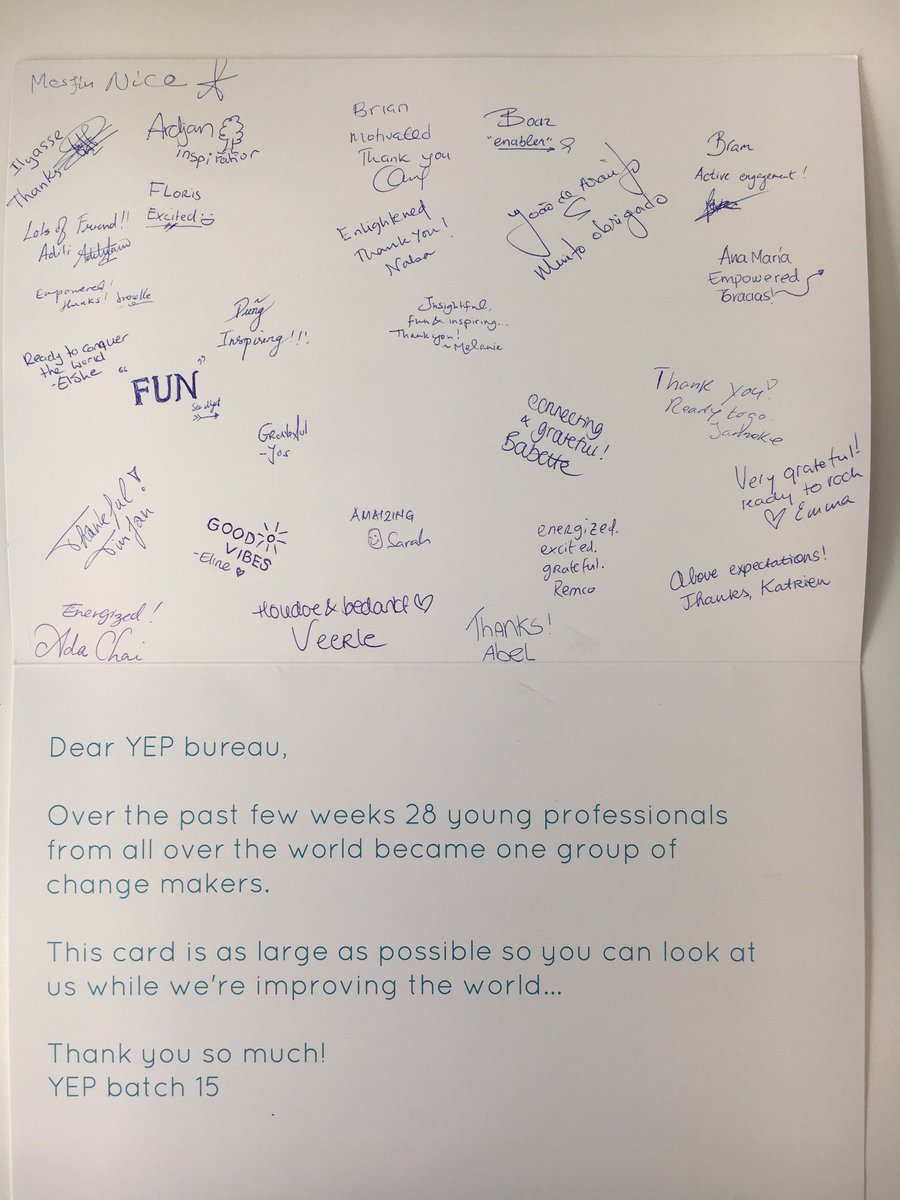 Mesfin Nice
Ilyasse
Thanks
Ardjan
inspiration
Brian
Motivated
Thank you
Boaz
"enabler"
João de Araújo
Muito obrigado
Bram
Active engagement!
Floris
Excited
Lots of Friend!!
Adili
Enlightened
Thank You!
Ana María
Empowered
Empowered!
thanks!
Inspiring!!!
Insightful,
fun & inspiring...
Thank you!
~Melanie
Ready to conquer
the world
-Elshe
"FUN"
Thank you!
Ready to go.
Grateful
-Jos
connecting
& grateful!
Babette
Very grateful!
ready to rock
Emma
Thankful!
Tim Jan
GOOD
VIBES
-Eline
AMAIZING
Sarah
energized.
excited.
grateful.
Remco
Above expectations!
Thanks, Katrien
Energized!
Ada Chai
Houdoe & bedankt
Veerle
THANKS!
Abel
Dear YEP bureau,
Over the past few weeks 28 young professionals
from all over the world became one group of
change makers.
This card is as large as possible so you can look at
us while we're improving the world...
Thank you so much!
YEP batch 15